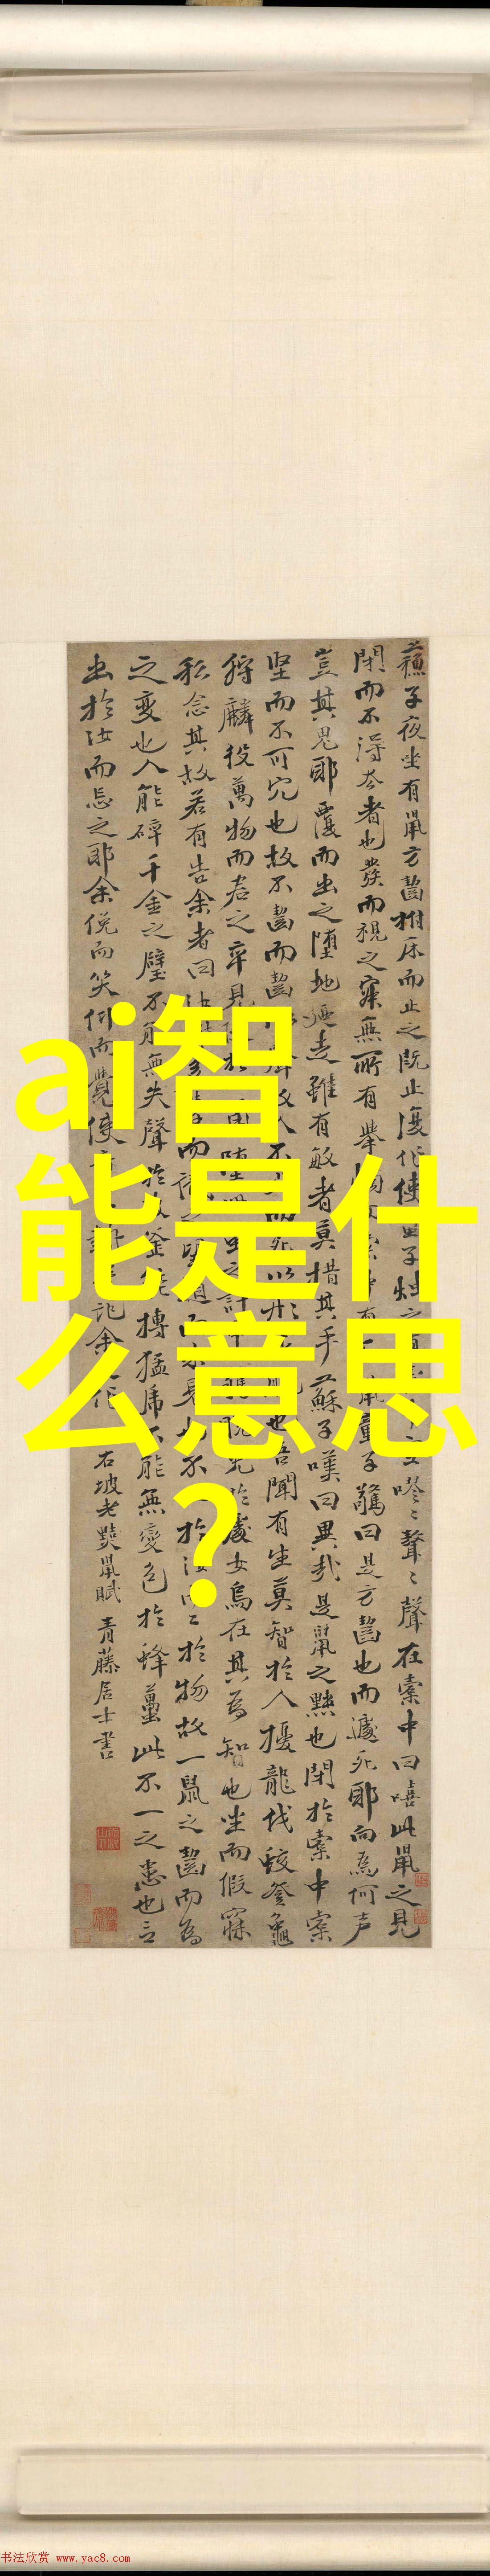 ai智
能是什
么意思
?
蘓子夜坐有鼠方齧拊床而止之既止復作使童子燭之有中空嘐〻聱〻聲在橐中曰嘻此鼠之見
閉而不得去者也發而視之寂無所有舉有鼠童子驚曰是方齧也而遽死耶向為何声
豈其鬼耶覆而出之墮地廼走雖有敏者莫措其手蘇子嘆曰異哉是鼠之黠也閉於橐中橐
堅而不可穴也故不齧而齧以形也吾聞有生莫智於人擾龍伐蛟登龜
狩麟役萬物而君之卒見於處女烏在其為智也坐而假寐
私念其故若有告余者曰而見也不於汝而二於物故一鼠之齧而為
之變也人能碎千金之璧不能無失聲於釜能搏猛虎不能無變色於蜂蠆此不一之患也言
出於汝而忘之耶余俛而笑仰而覺使記余作
右坡老黠鼠賦 青藤居士書
书法欣赏 www.yac8.com